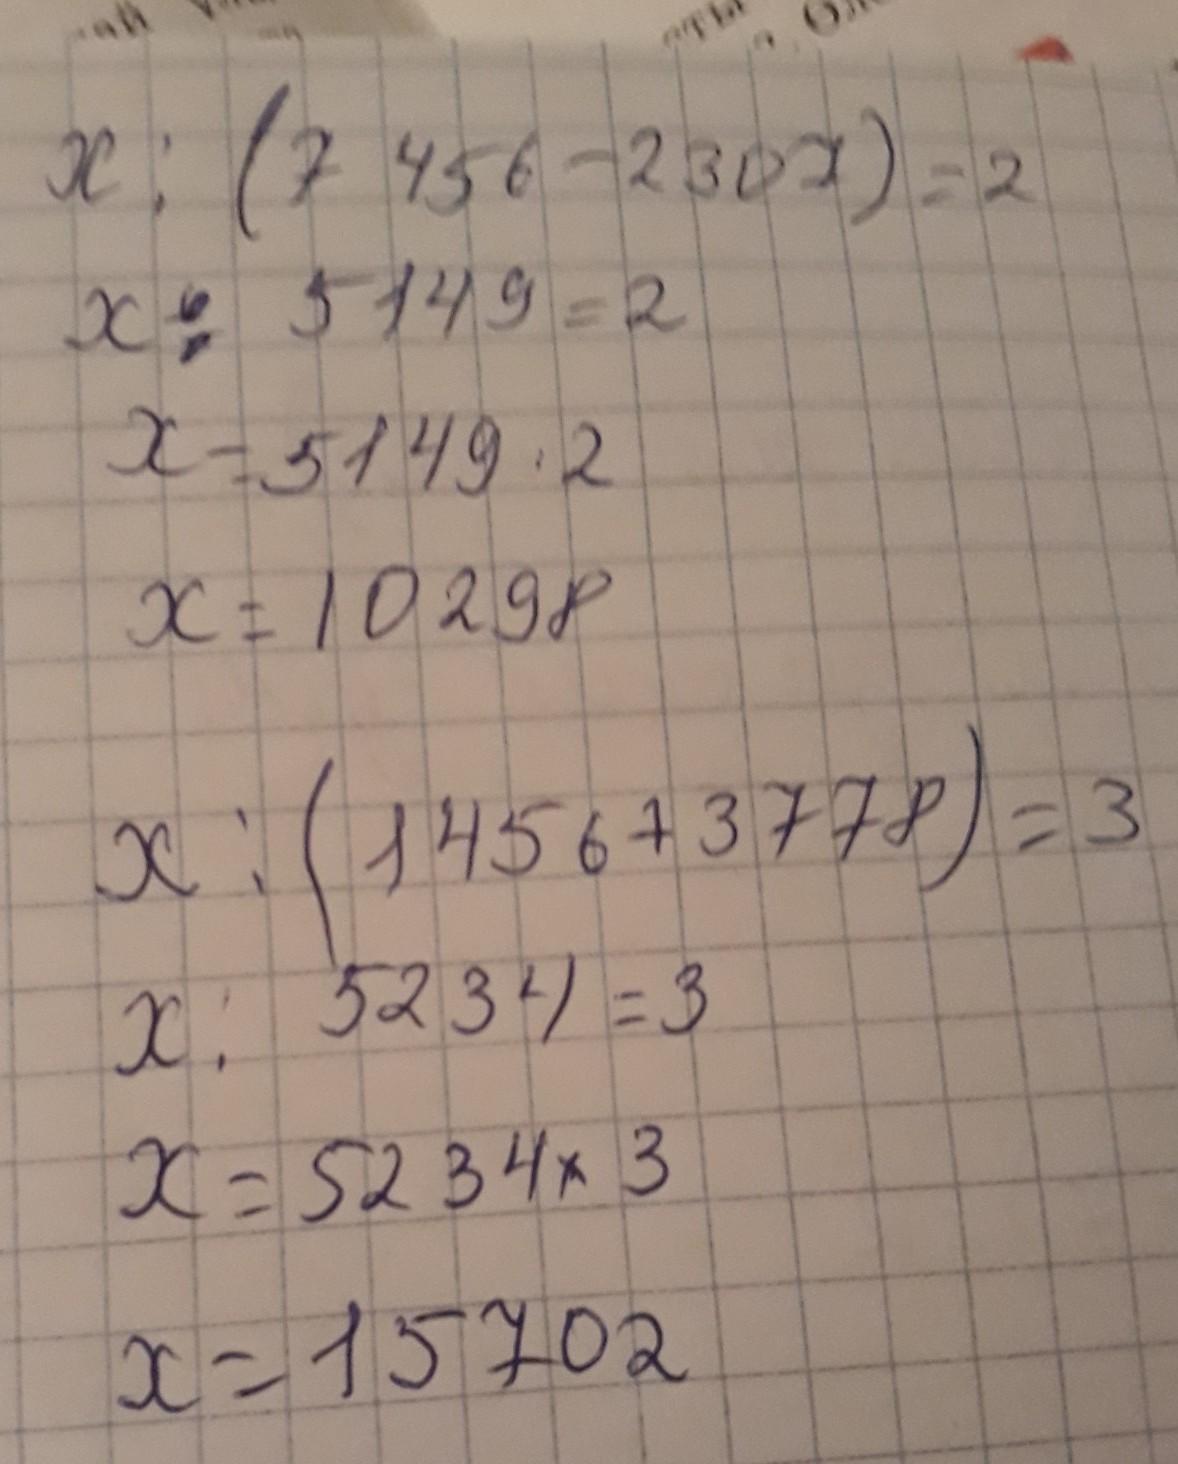 x : (7 456 - 2307) = 2
x : 5149 = 2
x = 5149 · 2
x = 10298
x : (1456 + 3778) = 3
x : 5234 = 3
x = 5234 × 3
x = 15702